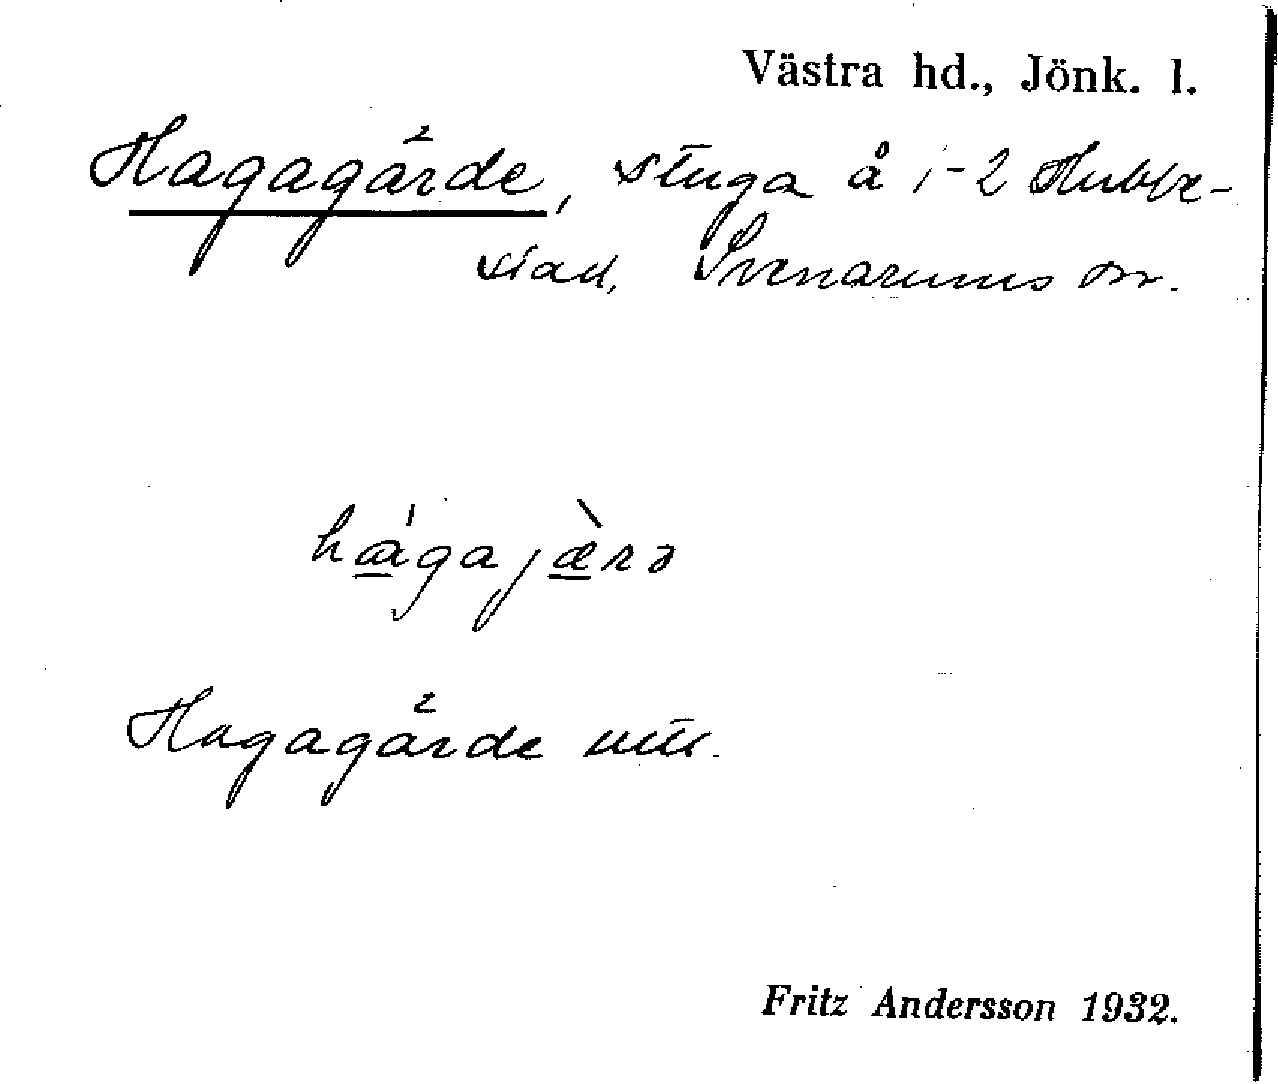 Västra hd., Jönk. l.
Hagagärde, stuga å 1-2 Hubbe-
stad, Svenarums sn.
hágajærə
Hagagärde utt.
Fritz Andersson 1932.